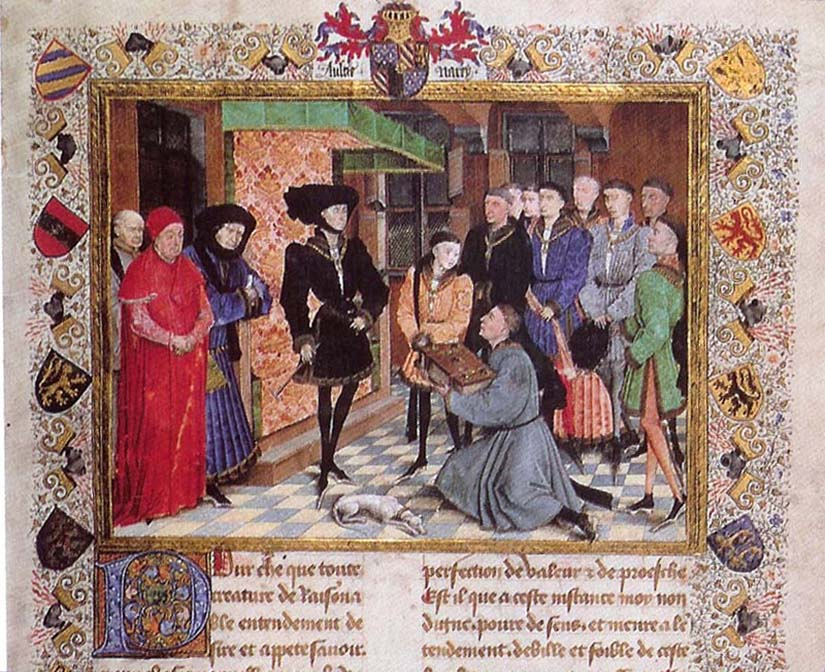 Aultre naray
POur che que toute
creature de Raison a
ble entendement de
sire et appete sauoir.
perfection de valeur & de proesche
Est il que a ceste instance moy non
digne, poure de sens, et menre
tendement, debille et foible de ceste